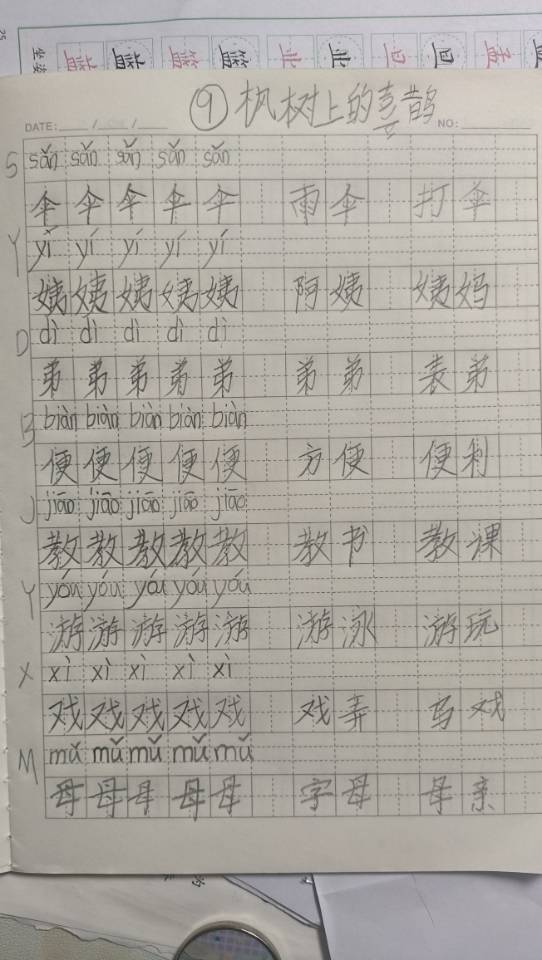 ⑨ 枫树上的喜鹊
DATE: / / NO:
S sǎn sǎn sǎn sǎn sǎn
伞 伞 伞 伞 伞 雨伞 打伞
Y yí yí yí yí yí
姨 姨 姨 姨 姨 阿姨 姨妈
D dì dì dì dì dì
弟 弟 弟 弟 弟 弟弟 表弟
B biàn biàn biàn biàn biàn
便 便 便 便 便 方便 便利
J jiāo jiāo jiāo jiāo jiāo
教 教 教 教 教 教书 教课
Y yóu yóu yóu yóu yóu
游 游 游 游 游 游泳 游玩
X xì xì xì xì xì
戏 戏 戏 戏 戏 戏弄 马戏
M mǔ mǔ mǔ mǔ mǔ
母 母 母 母 母 字母 母亲